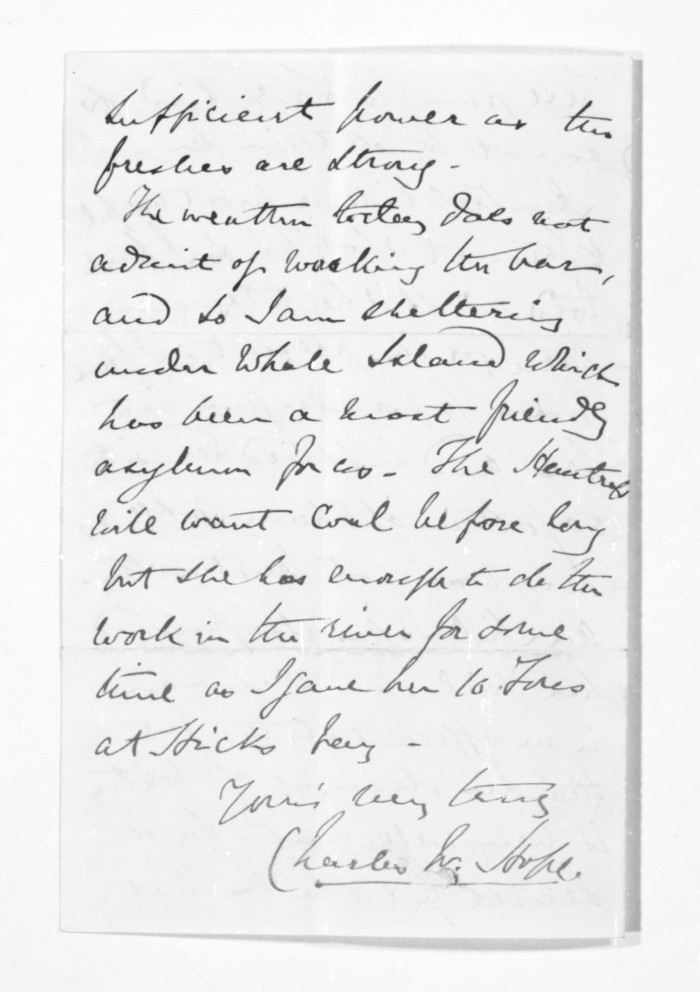 sufficient power as the
freshes are strong -
The weather today does not
admit of working the bar,
and so I am sheltering
under Whale Island which
has been a most friendly
asylum for us - The
will want coal before long
but she has enough to do the
work in the river for some
time as I gave her 10 Tons
at Hicks bay -
Yours very truly
Charles W. Hope.